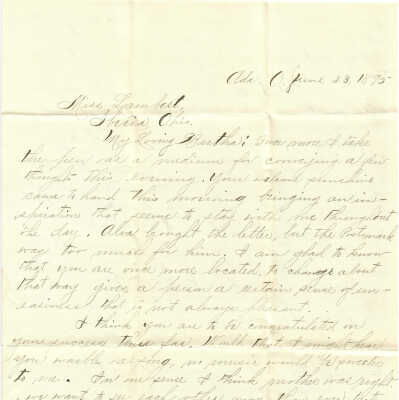 Ada, O. June 23, 1895
Miss Lambert,
Ohio.
My Loving Bertha: Once more I take
the pen as a medium for conveying a few
thoughts this evening. Your welcome sunshine
came to hand this morning bringing an in-
spiration that seems to stay with me throughout
the day. Alva bought the letter, but the Postmark
was too much for him. I am glad to know
that you are once more located, to change about
that way gives a person a certain sense of un-
easiness that is not always pleasant.
I think you are to be congratulated on
your success thus far. Would that I might hear
you warble a song, no music would be sweeter
to me. In one sense I think mother was right
we want to see each other more than ever that